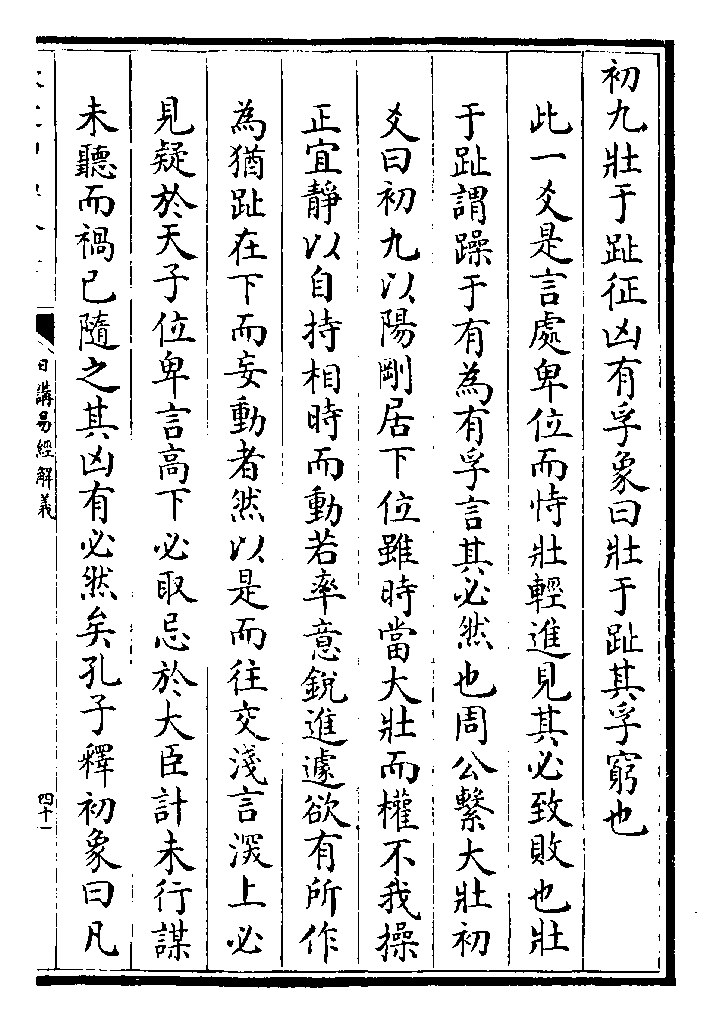 初九壯于趾征凶有孚象曰壯于趾其孚窮也
此一爻是言處卑位而恃壯輕進見其必致敗也壯
于趾謂躁于有為有孚言其必然也周公繫大壯初
爻曰初九以陽剛居下位雖時當大壯而權不我操
正宜靜以自持相時而動若率意銳進遽欲有所作
為猶趾在下而妄動者然以是而往交淺言深上必
見疑於天子位卑言高下必取忌於大臣計未行謀
未聽而禍已隨之其凶有必然矣孔子釋初象曰凡
日講易經解義
四十一